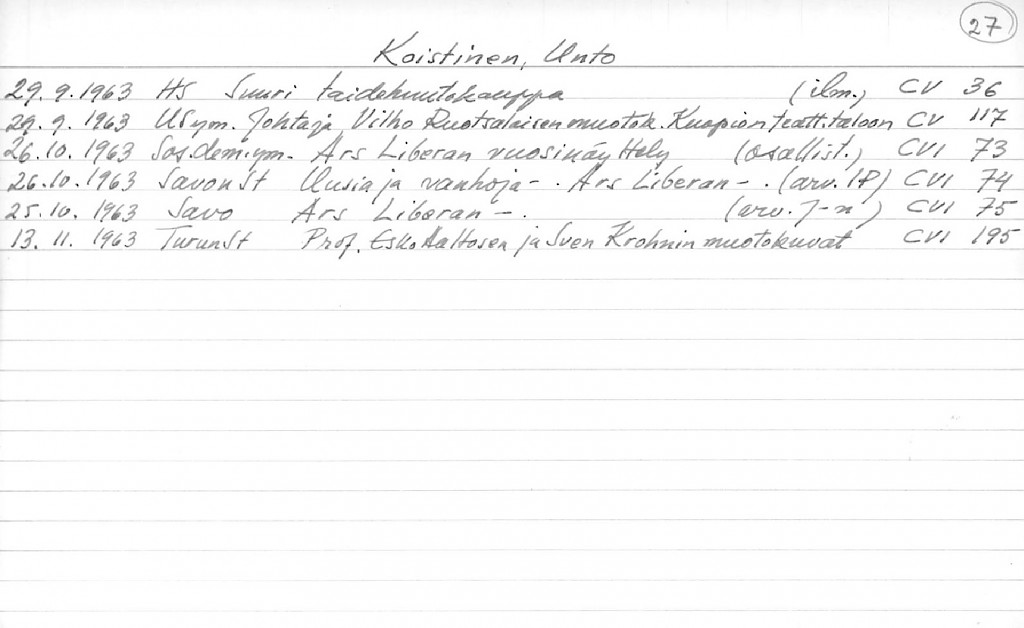 27
Koistinen, Unto
29.9.1963 HS Suuri taidehuutokauppa (ilm.) CV 36
29.9.1963 USym. Johtaja Vilho Ruotsalaisen muotok. Kuopion teatt.taloon CV 117
26.10.1963 Sos.dem.ym. Ars Liberan vuosinäyttely (osallist.) CVI 73
26.10.1963 SavonSt Uusia ja vanhoja -. Ars Liberan -. (arv. IP) CVI 74
25.10.1963 Savo Ars Liberan -. (arv. J-n) CVI 75
13.11.1963 TurunSt Prof. Esko Aaltosen ja Sven Krohnin muotokuvat CVI 195